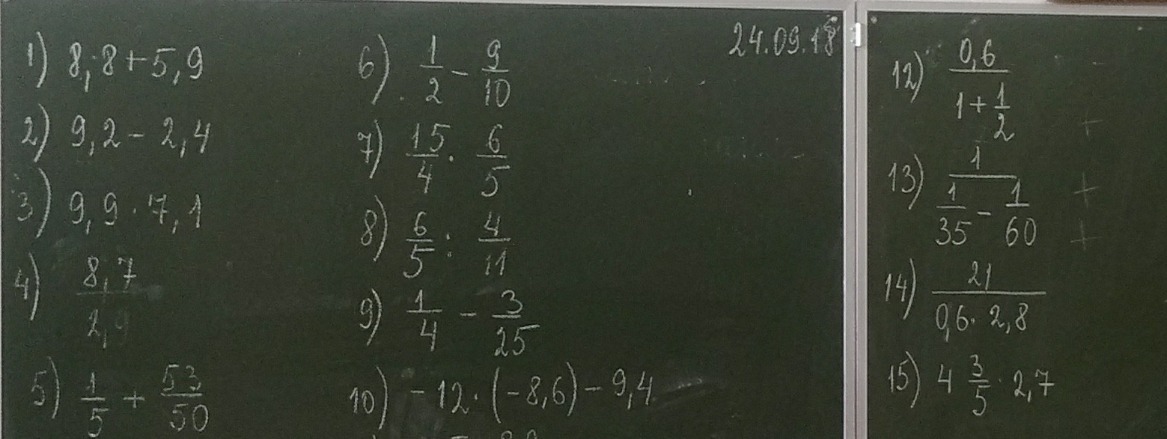 1) 8,8+5,9
2) 9,2-2,4
3) 9,9·7,1
4) 8,7/2,9
5) 1/5 + 53/50
6) 1/2 - 9/10
7) 15/4 · 6/5
8) 6/5 : 4/11
9) 1/4 - 3/25
10) -12·(-8,6)-9,4
24.09.18
12) 0,6/(1+1/2)
13) 1/(1/35 - 1/60)
14) 21/(0,6·2,8)
15) 4 3/5 · 2,7